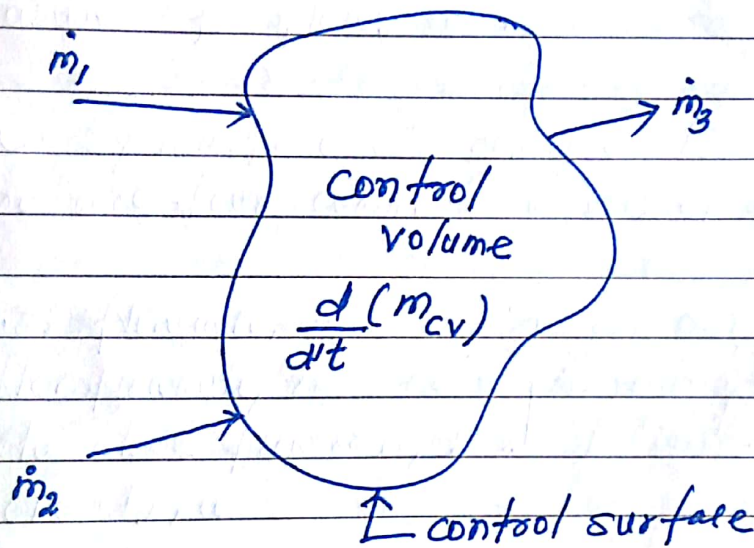 ṁ₁
ṁ₃
control
volume
d/dt (m_cv)
ṁ₂
control surface